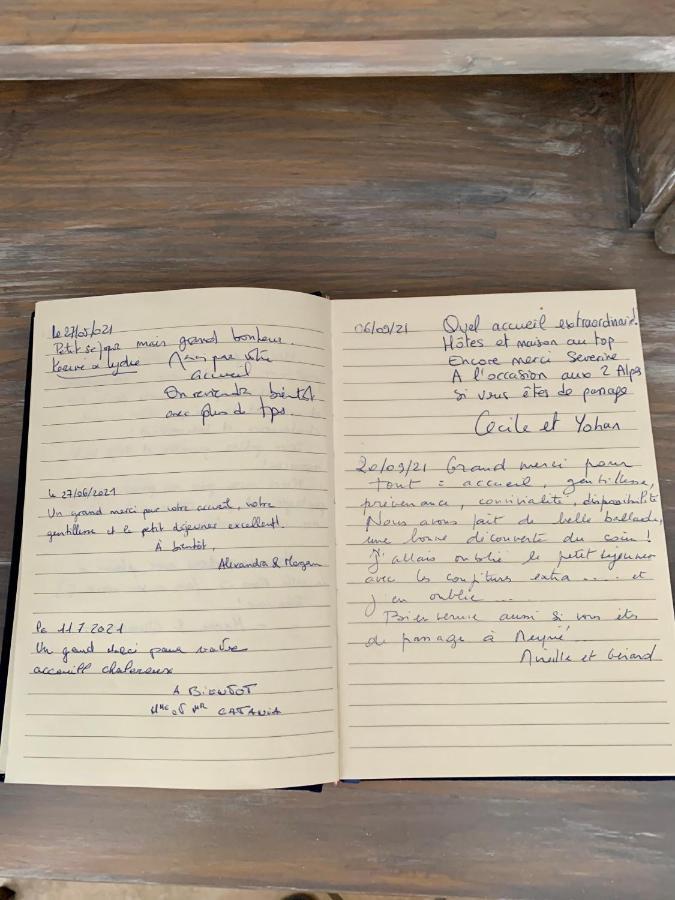 Le 27/05/2021
Petit séjour mais grand bonheur.
Lydie Merci pour votre
accueil
On reviendra bientôt
avec plus de tps.
Le 27/06/2021
Un grand merci pour votre accueil, votre
gentillesse et le petit déjeuner excellent!
À bientôt,
Alexandra & Morgan
Le 11.7.2021
Un grand merci pour votre
accueill chaleureux
A BIENTOT
Mme et Mr CATANIA
06/09/21 Quel accueil extraordinaire!
Hôtes et maison au top
Encore merci Severine
A l'occasion aux 2 Alpes
si vous êtes de passage
Cecile et Yohan
20/09/21 Grand merci pour
tout : accueil, gentillesse,
prévenance, convivialité, disponibilité
Nous avons fait de belle ballade,
une bonne découverte du coin !
J'allais oublié le petit déjeuner
avec les confitures extra .... et
j'en oublie ....
Bienvenue aussi si vous êtes
de passage à
Mireille et Gérard